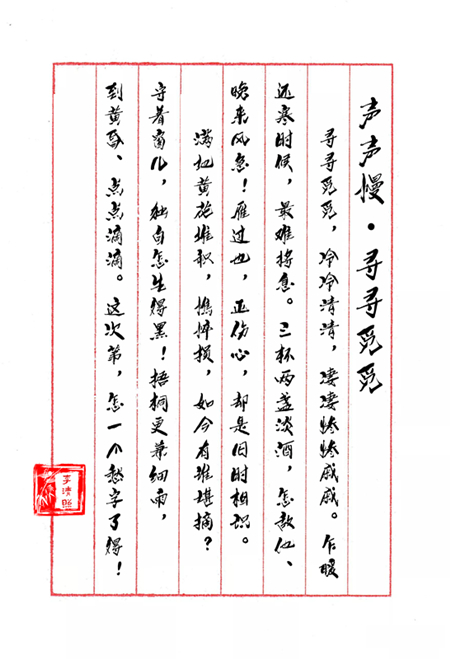 声声慢·寻寻觅觅
寻寻觅觅，冷冷清清，凄凄惨惨戚戚。乍暖
还寒时候，最难将息。三杯两盏淡酒，怎敌他、
晚来风急！雁过也，正伤心，却是旧时相识。
满地黄花堆积，憔悴损，如今有谁堪摘？
守着窗儿，独自怎生得黑！梧桐更兼细雨，
到黄昏、点点滴滴。这次第，怎一个愁字了得！
李清照